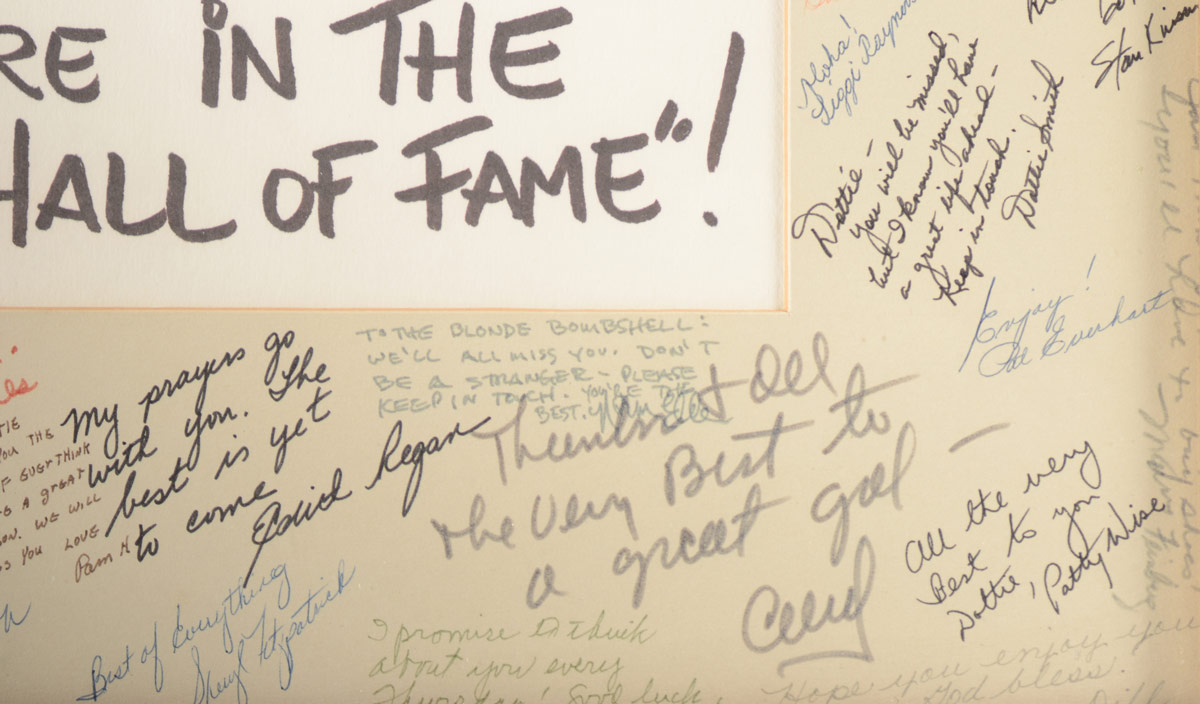 RE IN THE
HALL OF FAME"!
Aloha!
Dottie -
you will be missed,
but I know you'll have
a great life ahead -
Keep in touch.
Dottie Smith
Enjoy!
Pat Everhart
TO THE BLONDE BOMBSHELL:
WE'LL ALL MISS YOU. DON'T
BE A STRANGER - PLEASE
KEEP IN TOUCH. YOU'RE THE
BEST.
My prayers go
with you. The
best is yet
to come
Edied Regan
YOU THE
OF EVERYTHINK
A GREAT
WE WILL
YOU LOVE
Pam H
Best of Everything
Sheryl Fitzpatrick
Thanks for all
the Very Best to
a great gal -
All the very
Best to you
Dottie, Patty Wise
I promise to think
about you every
Good luck,
Hope you enjoy you
God bless.